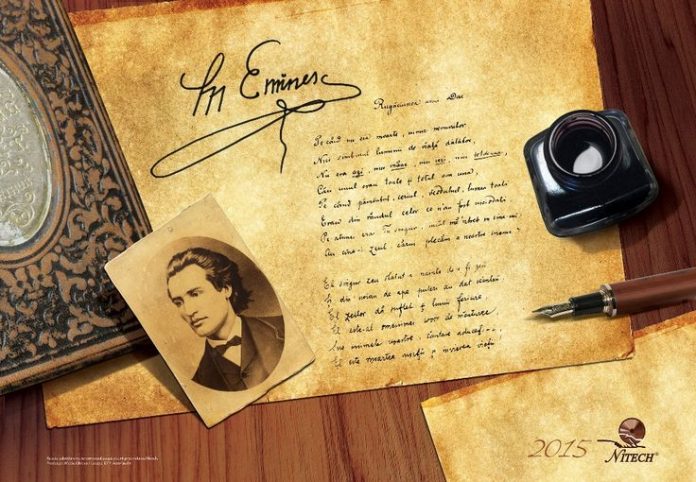 M Eminesc
Rugăciunea unui Dac
Pe când nu era moarte, nimic nemuritor
Nici sâmburul luminii de viață dătător,
Nu era azi, nici mâne, nici ieri, nici totdeuna
Căci unul erau toate și totul era una;
Pe când pământul, ceriul, văzduhul, lumea toată
Erau din rândul celor ce n'au fost niciodată
Pe atunci erai Tu singur, încât mă întreb în sine-mi
Au cine-i zeul cărui plecăm a noastre inemi?
El singur zeu stătut-a nainte de-a fi zeii
Și din noian de ape puteri au dat scânteii
El zeilor dă suflet și lumii fericire,
El este-al omenimei izvor de mântuire
Sus inimele voastre, Cântare aduceți-i
El este moartea morții și învierea vieții
2015
NITECH®